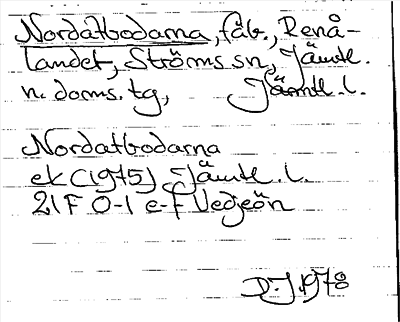 Nordatbodarna, fäb., Renå-
landet, Ströms sn, Jämtl.
n. doms. tg, Jämtl. l.
Nordatbodarna
ek (1975) Jämtl. l.
21 F 0-1 e-f Vedjeön
D. J. 1978